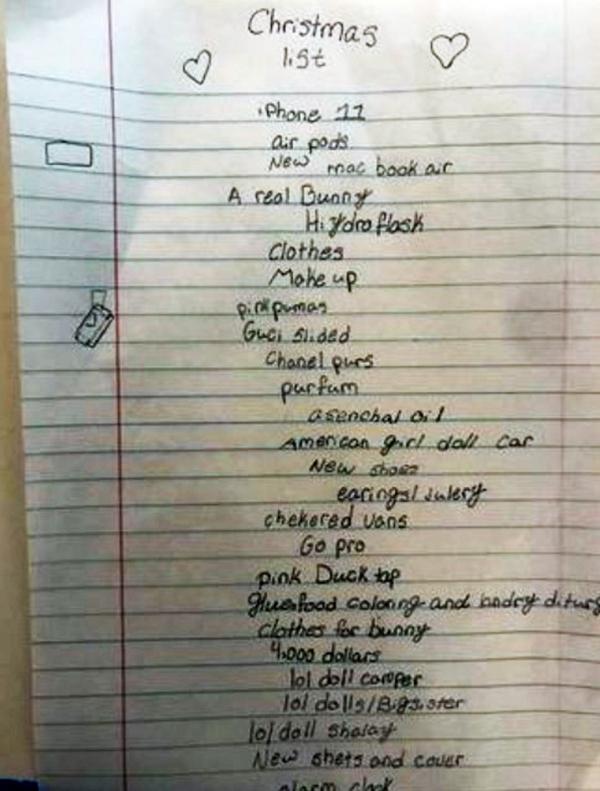 Christmas
list
iPhone 11
air pods
New mac book air
A real Bunny
Hydroflask
Clothes
Make up
pink pumas
Guci slided
Chanel purs
purfum
asenchal oil
American girl doll car
New shoes
earings/julery
chekered vans
Go pro
pink Duck tap
glue food coloring and
clothes for bunny
4,000 dollars
lol doll camper
lol dolls/Bigsister
lol doll shalay
New shets and cover
alarm clock